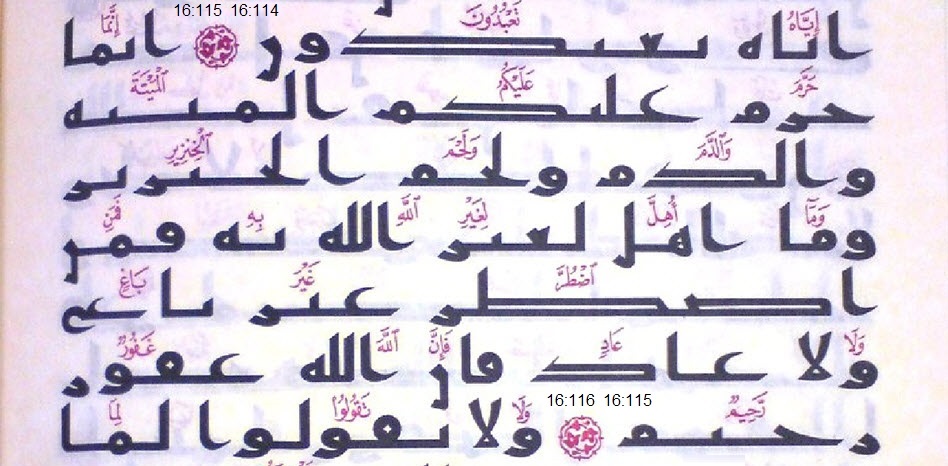 16:115 16:114
إِيَّاهُ تَعْبُدُونَ إِنَّمَا
اياه تعبدون انما
حَرَّمَ عَلَيْكُمُ ٱلْمَيْتَةَ
حرم عليكم الميته
وَٱلدَّمَ وَلَحْمَ ٱلْخِنزِيرِ
والدم ولحم الخنزير
وَمَآ أُهِلَّ لِغَيْرِ ٱللَّهِ بِهِ فَمَنِ
وما اهل لغير الله به فمن
ٱضْطُرَّ غَيْرَ بَاغٍ
اضطر غير باغ
وَلَا عَادٍ فَإِنَّ ٱللَّهَ غَفُورٌ
ولا عاد فان الله غفور
16:116 16:115
رَّحِيمٌ وَلَا تَقُولُوا لِمَا
رحيم ولا تقولوا لما